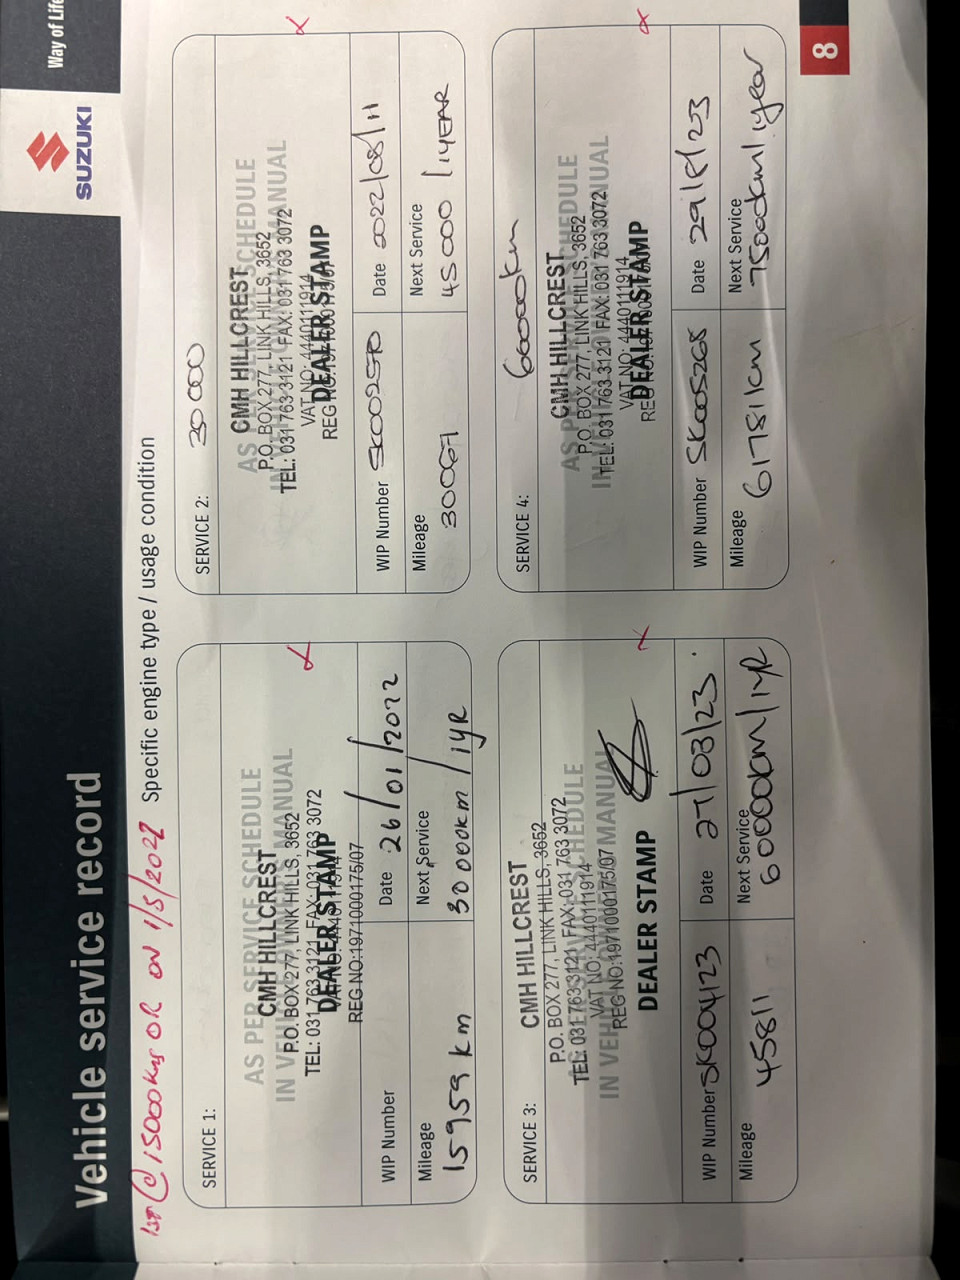 Way of Life
SUZUKI
Vehicle service record
1st @ 15000kms OR ON 1/5/2022
Specific engine type / usage condition
SERVICE 1:
AS PER SERVICE SCHEDULE
IN VEHICLE OWNER'S MANUAL
CMH HILLCREST
P.O. BOX 277, LINK HILLS, 3652
TEL: 031 763 3121 FAX: 031 763 3072
VAT NO: 4440111914
DEALER STAMP
REG NO:1971000175/07
WIP Number
Date 26/01/2022
Mileage
15959 km
Next Service
30 000km / 1YR
SERVICE 2: 30 000
AS PER SERVICE SCHEDULE
IN VEHICLE OWNER'S MANUAL
CMH HILLCREST
P.O. BOX 277, LINK HILLS, 3652
TEL: 031 763 3121 FAX: 031 763 3072
VAT NO: 4440111914
DEALER STAMP
REG NO:1971000175/07
WIP Number
Date 2022/08/11
Mileage
30067
Next Service
45000 / 1YEAR
SERVICE 3:
CMH HILLCREST
P.O. BOX 277, LINK HILLS, 3652
TEL: 031 763 3121 FAX: 031 763 3072
VAT NO: 4440111914
REG NO:1971000175/07
AS PER SERVICE SCHEDULE
IN VEHICLE OWNER'S MANUAL
DEALER STAMP
WIP Number SK004123
Date 27/03/23
Mileage
45811
Next Service
60000km/1YR
SERVICE 4: 60000km
AS PER SERVICE SCHEDULE
IN VEHICLE OWNER'S MANUAL
CMH HILLCREST
P.O. BOX 277, LINK HILLS, 3652
TEL: 031 763 3121 FAX: 031 763 3072
VAT NO: 4440111914
DEALER STAMP
WIP Number SK005268
Date 29/8/23
Mileage
61781km
Next Service
75000km/1year
8